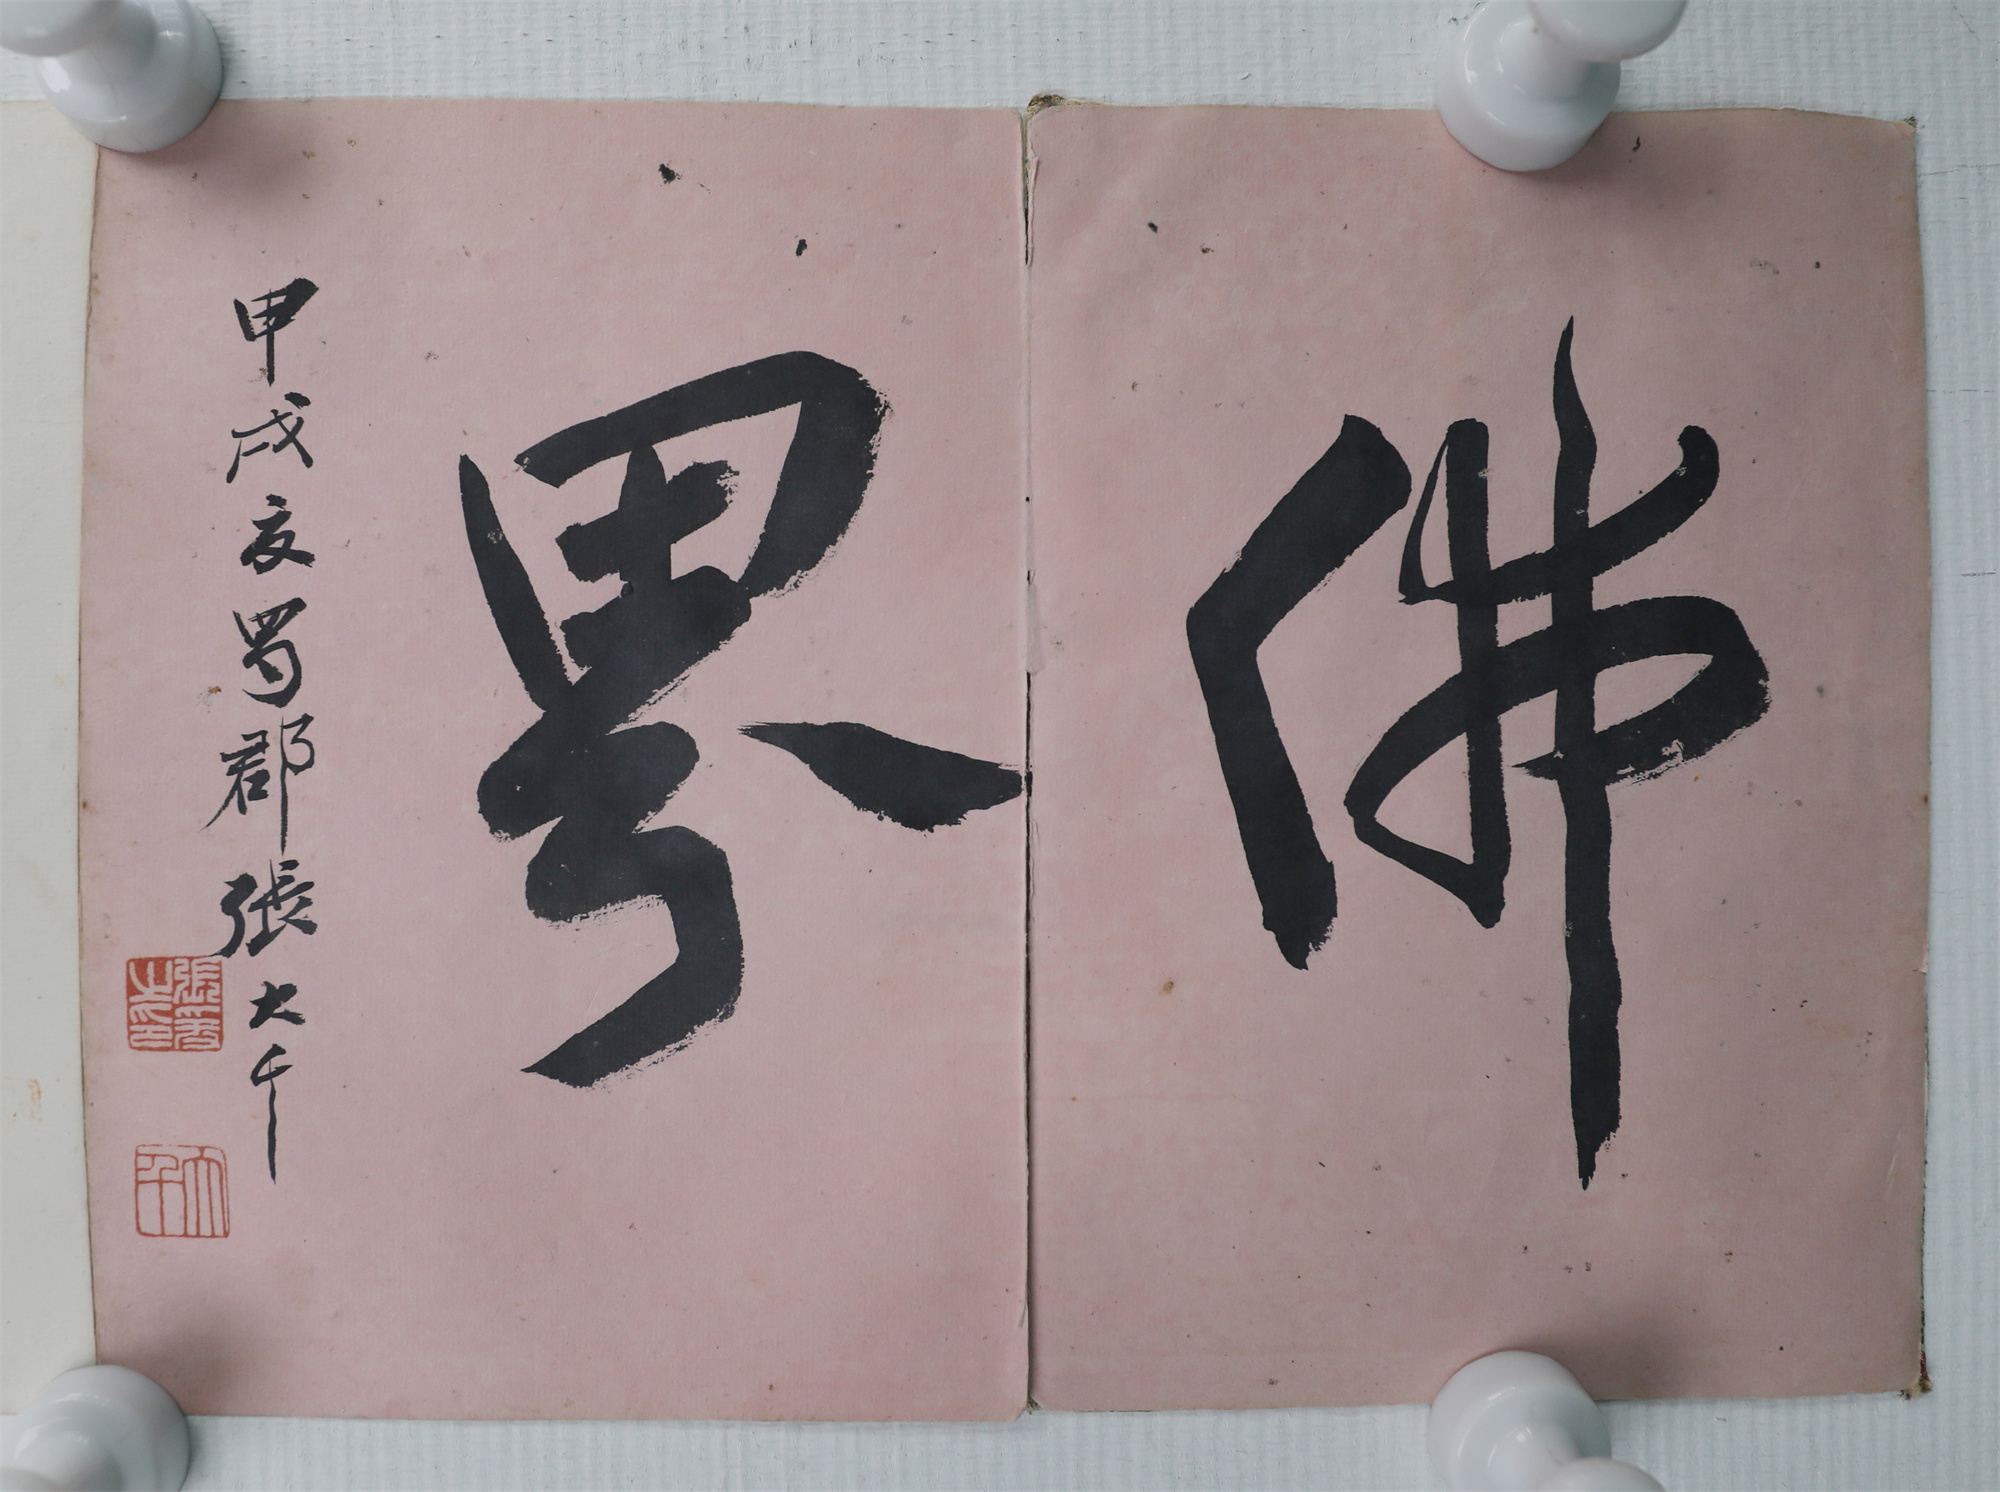 佛界
甲戌夏蜀郡張大千
張爰之印
大千